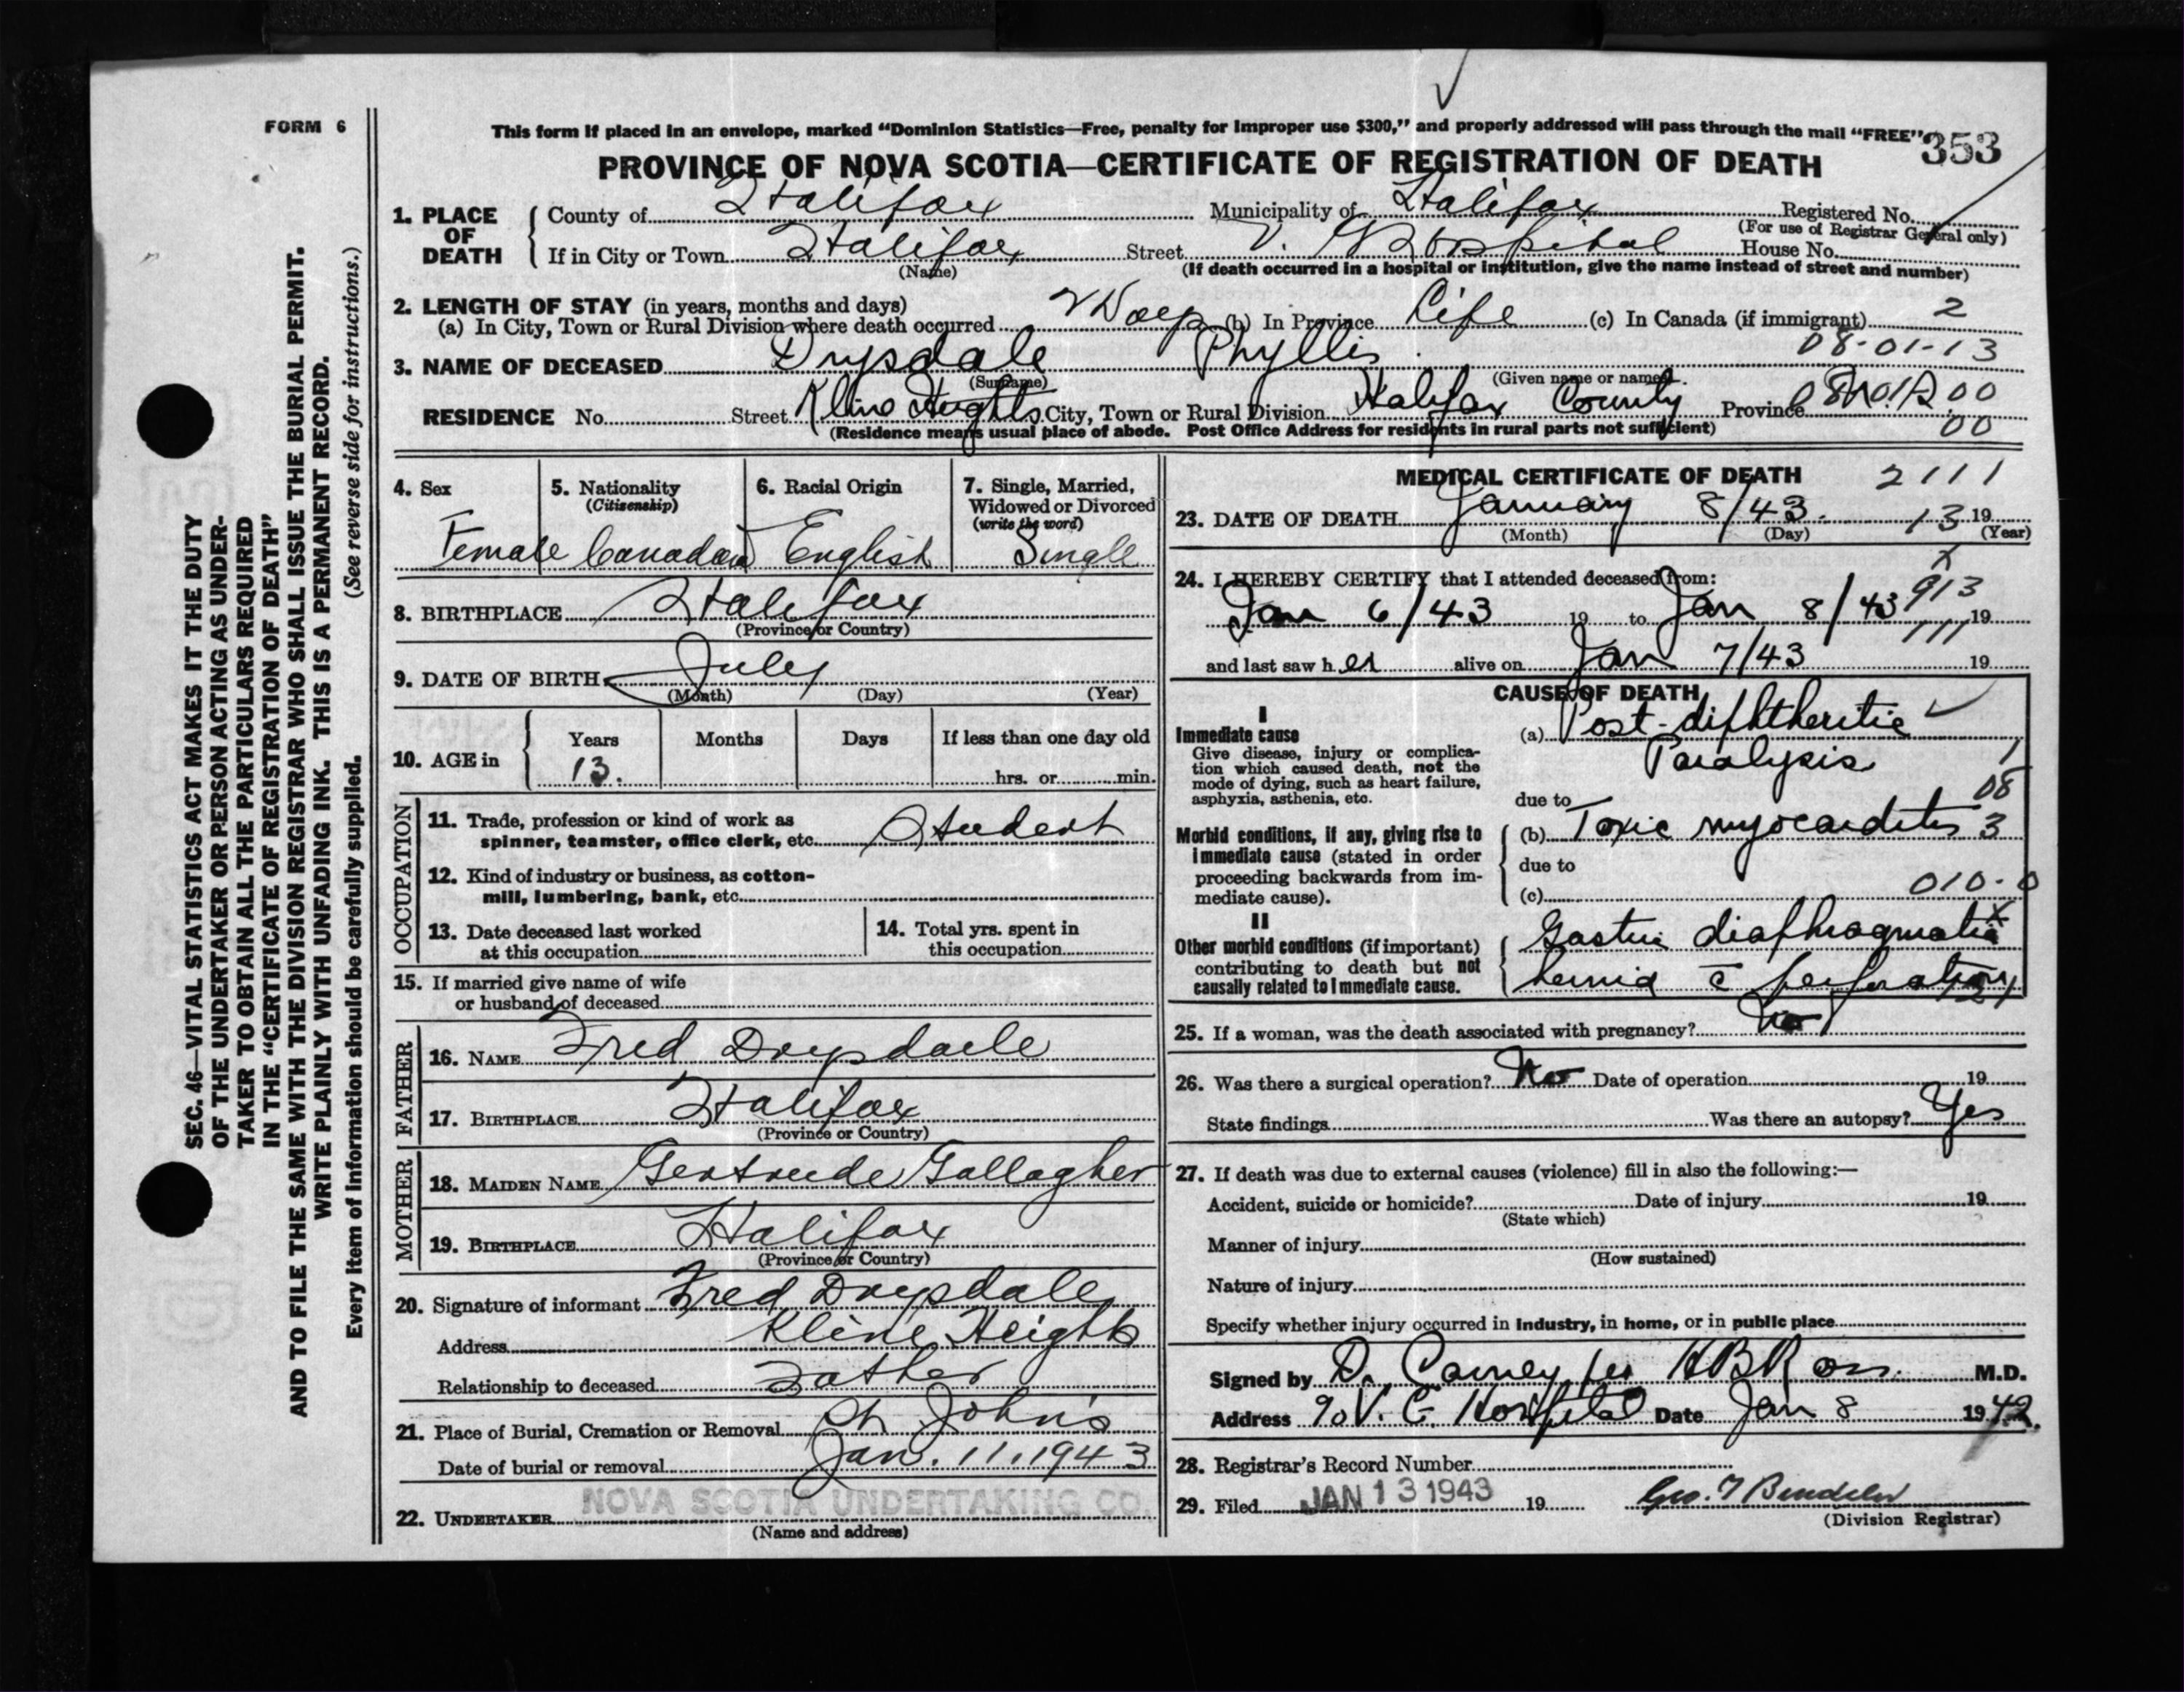 FORM 6
This form if placed in an envelope, marked “Dominion Statistics—Free, penalty for improper use $300,” and properly addressed will pass through the mail “FREE”
353
PROVINCE OF NOVA SCOTIA—CERTIFICATE OF REGISTRATION OF DEATH
SEC. 46—VITAL STATISTICS ACT MAKES IT THE DUTY
OF THE UNDERTAKER OR PERSON ACTING AS UNDER-
TAKER TO OBTAIN ALL THE PARTICULARS REQUIRED
IN THE “CERTIFICATE OF REGISTRATION OF DEATH”
AND TO FILE THE SAME WITH THE DIVISION REGISTRAR WHO SHALL ISSUE THE BURIAL PERMIT.
WRITE PLAINLY WITH UNFADING INK. THIS IS A PERMANENT RECORD.
Every item of information should be carefully supplied. (See reverse side for instructions.)
1. PLACE OF DEATH
County of Halifax Municipality of Halifax Registered No.
(For use of Registrar General only)
If in City or Town Halifax Street V. G Hospital House No.
(Name) (If death occurred in a hospital or institution, give the name instead of street and number)
2. LENGTH OF STAY (in years, months and days)
(a) In City, Town or Rural Division where death occurred 2 Days (b) In Province Life (c) In Canada (if immigrant) 2
08-01-13
3. NAME OF DECEASED Drysdale Phyllis
(Surname) (Given name or names)
RESIDENCE No. Street Kline Heights City, Town or Rural Division Halifax County Province
(Residence means usual place of abode. Post Office Address for residents in rural parts not sufficient) 00
4. Sex
Female
5. Nationality
(Citizenship)
Canadian
6. Racial Origin
English
7. Single, Married,
Widowed or Divorced
(write the word)
Single
8. BIRTHPLACE Halifax
(Province or Country)
9. DATE OF BIRTH July
(Month) (Day) (Year)
10. AGE in
Years Months Days If less than one day old
13. hrs. or min.
OCCUPATION
11. Trade, profession or kind of work as
spinner, teamster, office clerk, etc. Student
12. Kind of industry or business, as cotton-
mill, lumbering, bank, etc.
13. Date deceased last worked
at this occupation
14. Total yrs. spent in
this occupation
15. If married give name of wife
or husband of deceased
FATHER
16. NAME Fred Drysdale
17. BIRTHPLACE Halifax
(Province or Country)
MOTHER
18. MAIDEN NAME Gertrude Gallagher
19. BIRTHPLACE Halifax
(Province or Country)
20. Signature of informant Fred Drysdale
Address Kline Heights
Relationship to deceased Father
21. Place of Burial, Cremation or Removal St. John's
Date of burial or removal Jan. 11, 1943
22. UNDERTAKER NOVA SCOTIA UNDERTAKING CO.
(Name and address)
MEDICAL CERTIFICATE OF DEATH 2111
23. DATE OF DEATH January 8/43. 13 19
(Month) (Day) (Year)
24. I HEREBY CERTIFY that I attended deceased from: x
913
Jan 6/43 19 to Jan 8/43 19
111
and last saw her alive on Jan 7/43 19
CAUSE OF DEATH
I
Immediate cause
Give disease, injury or complica-
tion which caused death, not the
mode of dying, such as heart failure,
asphyxia, asthenia, etc.
(a) Post-diphtheritic
Paralysis 1
due to 08
Morbid conditions, if any, giving rise to
immediate cause (stated in order
proceeding backwards from im-
mediate cause).
(b) Toxic myocarditis 3
due to
(c) 010-0
II
Other morbid conditions (if important)
contributing to death but not
causally related to immediate cause.
Gastric diaphragmatic x
hernia c̄ perforation
25. If a woman, was the death associated with pregnancy? No
26. Was there a surgical operation? No Date of operation 19
State findings Was there an autopsy? Yes
27. If death was due to external causes (violence) fill in also the following:—
Accident, suicide or homicide? Date of injury 19
(State which)
Manner of injury
(How sustained)
Nature of injury
Specify whether injury occurred in industry, in home, or in public place
Signed by D. Carney per HB Ross M.D.
Address V. G. Hospital Date Jan 8 19
28. Registrar's Record Number
29. Filed JAN 13 1943 19
(Division Registrar)